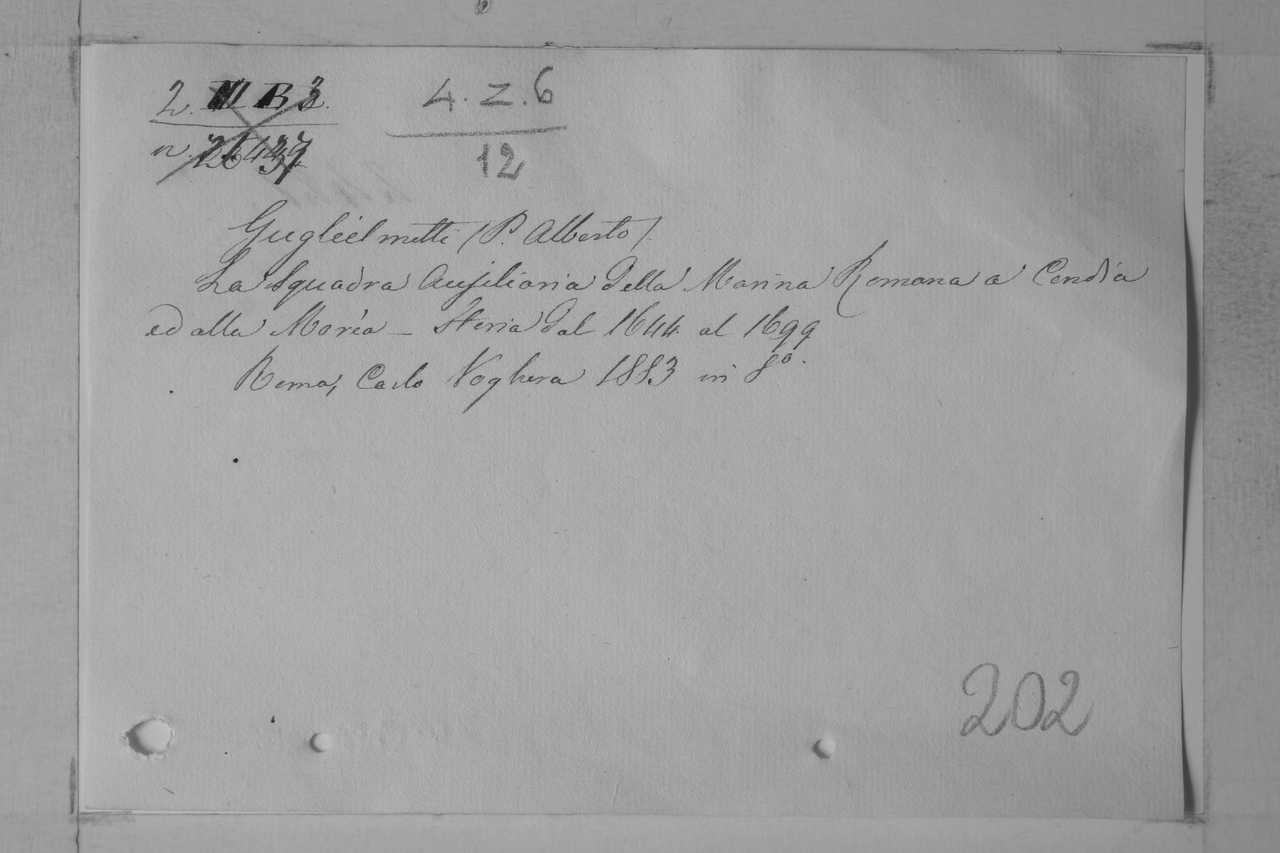 2. III B 3.
n. 26437
4. Z. 6
12
Guglielmotti (P. Alberto).
La Squadra Ausiliaria della Marina Romana a Candia
ed alla Morèa – Storia dal 1644 al 1699
Roma, Carlo Voghera 1883 in 8º.
202